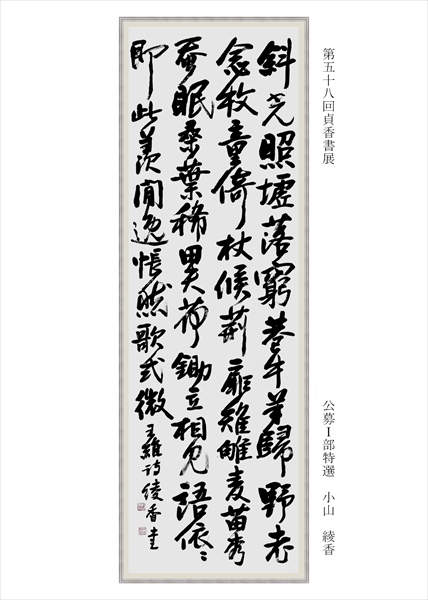 第五十八回貞香書展
公募Ⅰ部特選　小山　綾香
斜光照墟落窮巷牛羊歸野老
念牧童倚杖候荊扉雉雊麦苗秀
蚕眠桑葉稀田夫荷鋤立相見語依〻
即此羨閒逸悵然歌式微 王維詩 綾香書